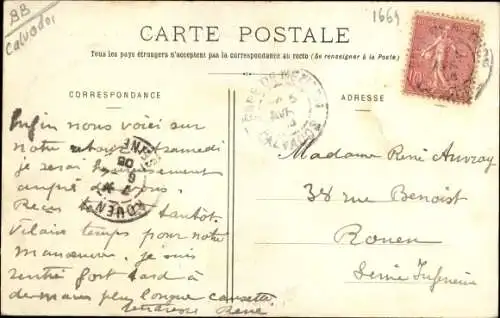 BB
Calvados
1669
CARTE POSTALE
Tous les pays étrangers n'acceptent pas la correspondance au recto (Se renseigner à la Poste)
CORRESPONDANCE
ADRESSE
Enfin nous voici sur
notre retour samedi
je serai
auprès de vous.
tantôt.
Vilain temps pour notre
manœuvre, je suis
rentré fort tard à
demain plus longue causette
tendresse René
CALVADOS
ROUEN
10
Madame René Auvray
38 rue Benoist
Rouen
Seine Inférieure